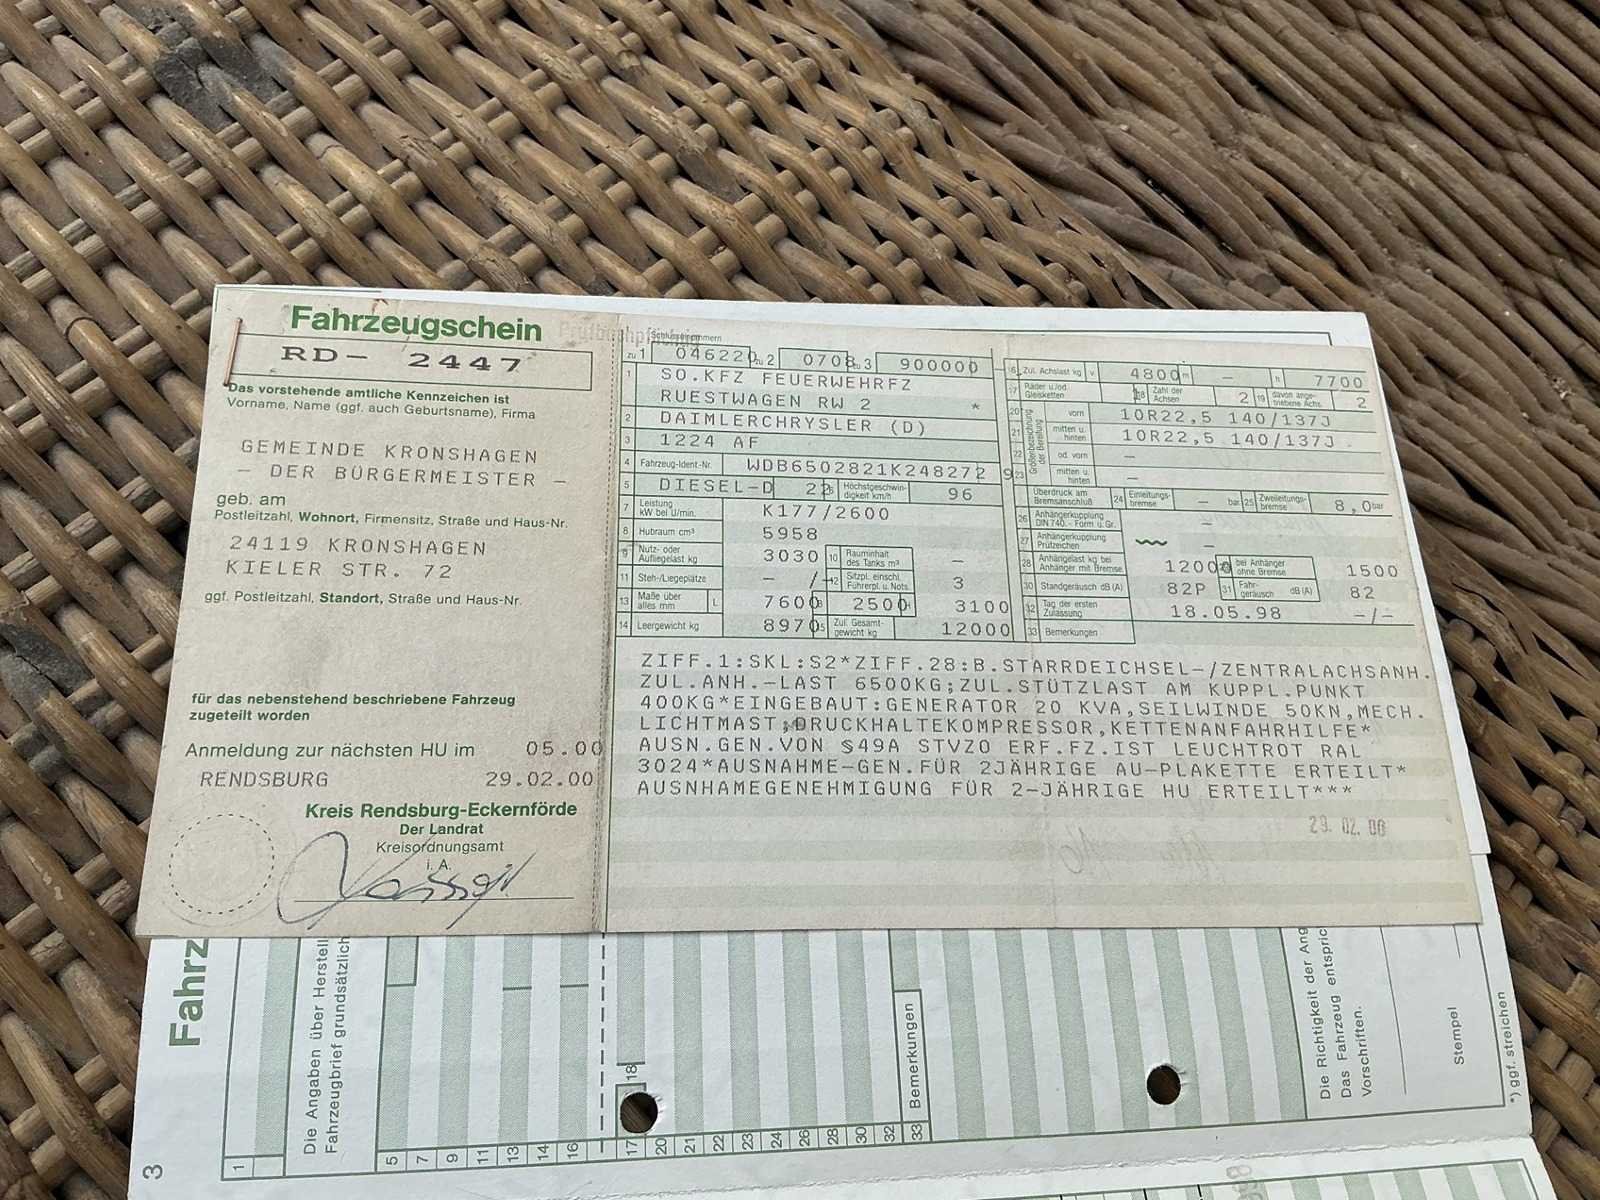 Fahrzeugschein
RD- 2447
Das vorstehende amtliche Kennzeichen ist
Vorname, Name (ggf. auch Geburtsname), Firma
GEMEINDE KRONSHAGEN
- DER BÜRGERMEISTER -
geb. am
Postleitzahl, Wohnort, Firmensitz, Straße und Haus-Nr.
24119 KRONSHAGEN
KIELER STR. 72
ggf. Postleitzahl, Standort, Straße und Haus-Nr.
für das nebenstehend beschriebene Fahrzeug
zugeteilt worden
Anmeldung zur nächsten HU im 05.00
RENDSBURG 29.02.00
Kreis Rendsburg-Eckernförde
Der Landrat
Kreisordnungsamt
i. A.
Schlüsselnummern
zu 1 046220 zu 2 0708 zu 3 900000
1 SO.KFZ FEUERWEHRFZ
RUESTWAGEN RW 2 *
2 DAIMLERCHRYSLER (D)
3 1224 AF
4 Fahrzeug-Ident.-Nr. WDB6502821K248272 9
5 DIESEL-D 22 6 Höchstgeschwindigkeit km/h 96
7 Leistung kW bei U/min. K177/2600
8 Hubraum cm³ 5958
9 Nutz- oder Aufliegelast kg 3030 10 Rauminhalt des Tanks m³ -
11 Steh-/Liegeplätze - /- 12 Sitzpl. einschl. Führerpl. u. Nots. 3
13 Maße über alles mm L 7600 B 2500 H 3100
14 Leergewicht kg 8970 15 Zul. Gesamtgewicht kg 12000
16 Zul. Achslast kg v 4800 m - h 7700
17 Räder u./od. Gleisketten 1 18 Zahl der Achsen 2 19 davon angetriebene Achs. 2
Größenbezeichnung der Bereifung
20 vorn 10R22,5 140/137J
21 mitten u. hinten 10R22,5 140/137J
22 od. vorn -
23 mitten u. hinten -
Überdruck am Bremsanschluß 24 Einleitungsbremse - bar 25 Zweileitungsbremse 8,0 bar
26 Anhängerkupplung DIN 740.- Form u. Gr. -
27 Anhängerkupplung Prüfzeichen -
28 Anhängelast kg bei Anhänger mit Bremse 12000 29 bei Anhänger ohne Bremse 1500
30 Standgeräusch dB (A) 82P 31 Fahrgeräusch dB (A) 82
32 Tag der ersten Zulassung 18.05.98 -/-
33 Bemerkungen
ZIFF.1:SKL:S2*ZIFF.28:B.STARRDEICHSEL-/ZENTRALACHSANH.
ZUL.ANH.-LAST 6500KG;ZUL.STÜTZLAST AM KUPPL.PUNKT
400KG*EINGEBAUT:GENERATOR 20 KVA,SEILWINDE 50KN,MECH.
LICHTMAST,DRUCKHALTEKOMPRESSOR,KETTENANFAHRHILFE*
AUSN.GEN.VON §49A STVZO ERF.FZ.IST LEUCHTROT RAL
3024*AUSNAHME-GEN.FÜR 2JÄHRIGE AU-PLAKETTE ERTEILT*
AUSNHAMEGENEHMIGUNG FÜR 2-JÄHRIGE HU ERTEILT***
29. 02. 00
Fahrz
3
1
Die Angaben über Herstell
Fahrzeugbrief grundsätzlich
5
7
9
11
13
14
16
17
18
20
21
22
23
24
26
28
30
32
33 Bemerkungen
Die Richtigkeit der Ang
Das Fahrzeug entspric
Vorschriften.
Stempel
*) ggf. streichen